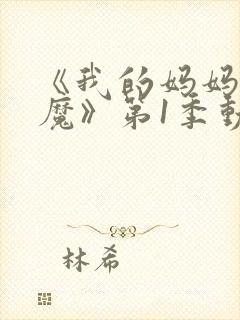 《我的妈妈
魔》第1季動
林希